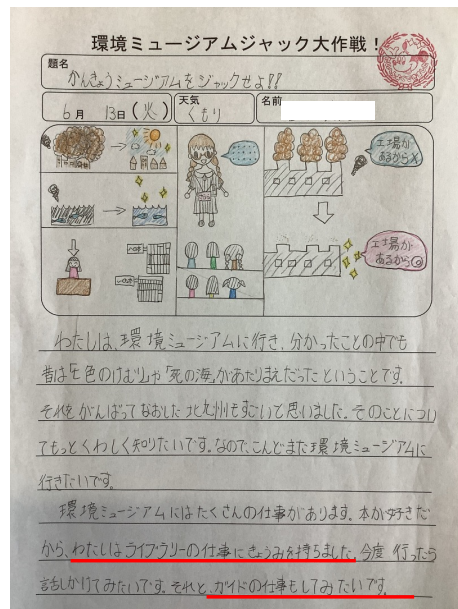 環境ミュージアムジャック大作戦!
題名
かんきょうミュージアムをジャックせよ!!
6月 13日(火)
天気
くもり
名前
工場が
あるから×
工場が
あるから◎
わたしは、環境ミュージアムに行き、分かったことの中でも
昔は「七色のけむり」や「死の海」があたりまえだったということです。
それをがんばってなおした北九州もすごいと思いました。そのことについ
てもっとくわしく知りたいです。なので、こんどまた環境ミュージアムに
行きたいです。
環境ミュージアムにはたくさんの仕事があります。本が好きだ
から、わたしはライブラリーの仕事にきょうみを持ちました。今度行ったら
話しかけてみたいです。それと、ガイドの仕事もしてみたいです。